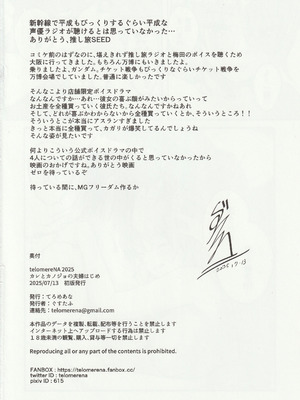 新幹線で平成もびっくりするぐらい平成な
声優ラジオが聴けるとは思っていなかった…
ありがとう、推し旅SEED
コミケ前のはずなのに、堪えきれず推し旅ラジオと梅田のボイスを聴くため
大阪に行ってきました。もちろん万博にもいきましたよ。
乗りましたよ、ガンダム。チケット戦争もびっくりなぐらいチケット戦争を
万博会場でしていました。普通に楽しかったです
そんなこより店舗限定ボイスドラマ
なんなんですか…あれ…彼女の喜ぶ顔がみたいからっていって
お土産を全種買っていく彼氏たち、なんなんですかねあれ
そして、どれが喜ぶかわからないから全種買っていくとか、そういうところ！！
そういうとこが本当にアスランすぎました
きっと本当に全種買って、カガリが爆笑してるんでしょうね
そんな姿が見たいです
何よりこういう公式ボイスドラマの中で
4人についての話ができる世の中がくると思っていなかったから
映画のおかげですね、ありがとう映画
ゼロを待っているぞ
待っている間に、MGフリーダム作るか
2025.7.13
奥付
telomereNA 2025
カレとカノジョの夫婦はじめ
2025/07/13　初版発行
発行：てろめあな
発行者：ぐすたふ
連絡先：telomerena@gmail.com
本作品のデータを複製、転載、配布等を行うことを禁止します
インターネット上へアップロードする行為は禁止します
１８歳未満の観覧、購入、貸与等一切を禁止します
Reproducing all or any part of the contents is prohibited.
FANBOX : https://telomerena.fanbox.cc/
twitter ID : telomerena
pixiv ID : 615